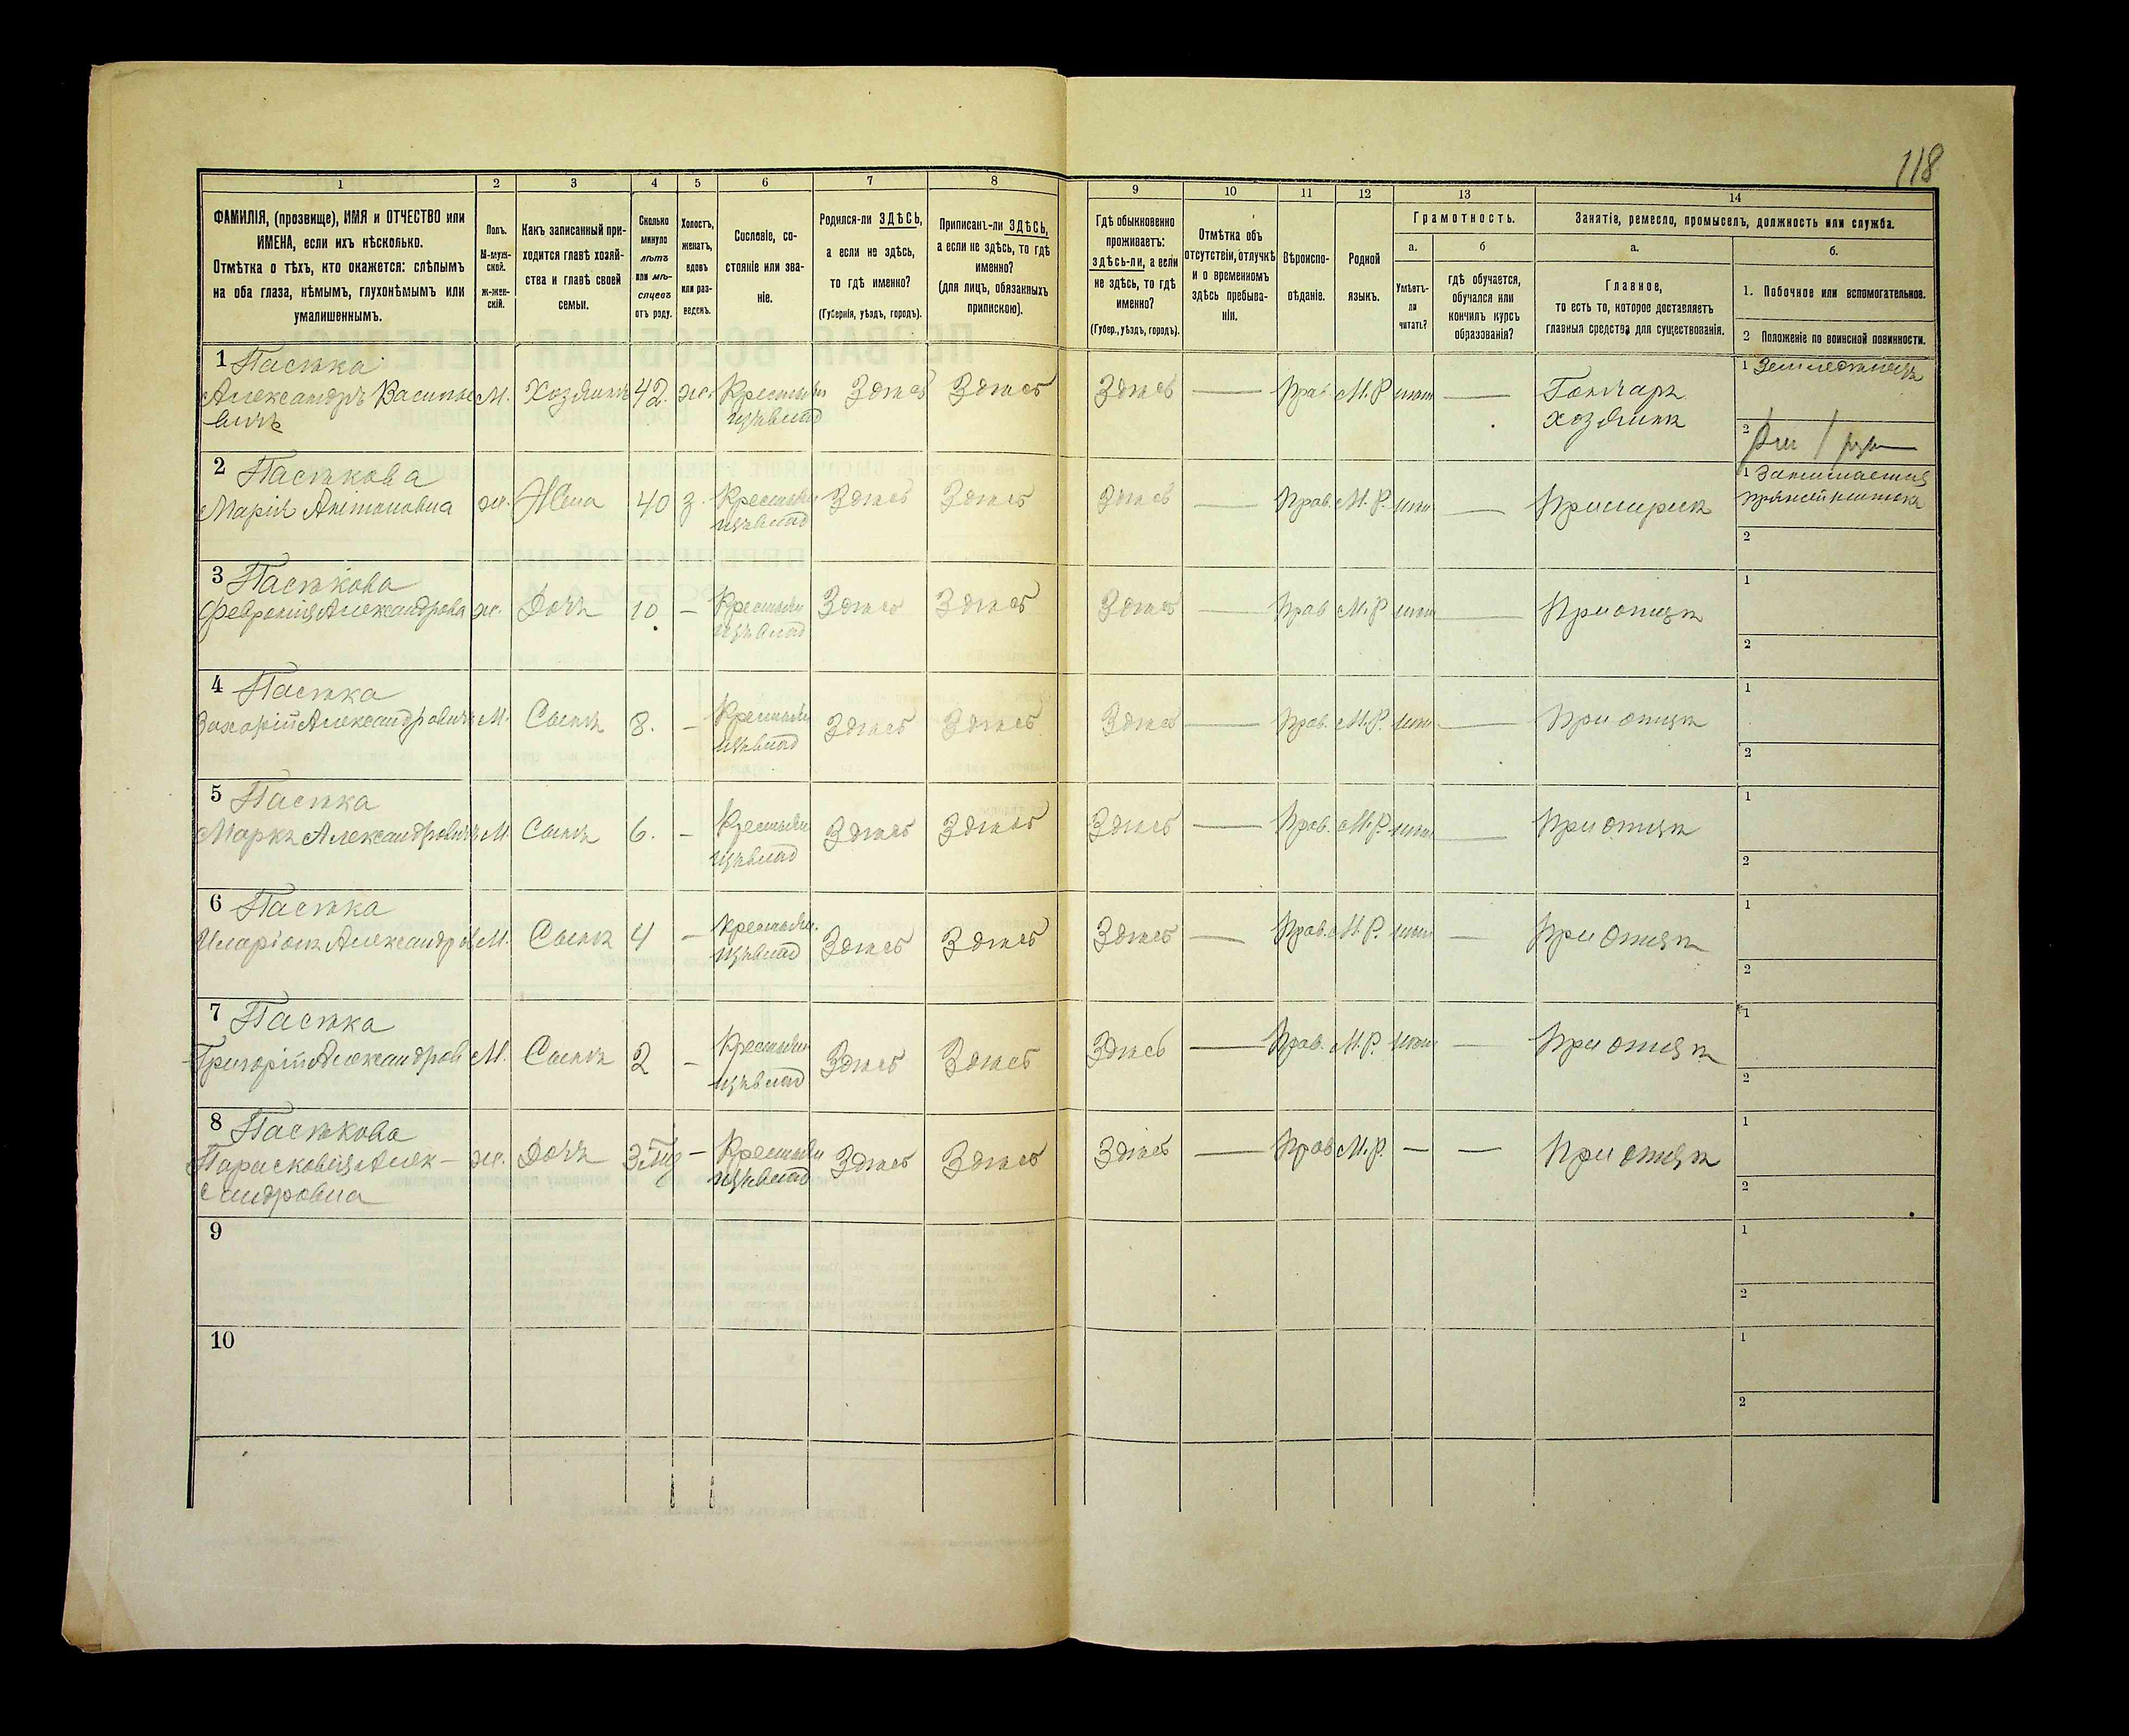 118
1 2 3 4 5 6 7 8 9 10 11 12 13 14
ФАМИЛІЯ, (прозвище), ИМЯ и ОТЧЕСТВО или
ИМЕНА, если ихъ нѣсколько.
Отмѣтка о тѣхъ, кто окажется: слѣпымъ
на оба глаза, нѣмымъ, глухонѣмымъ или
умалишеннымъ.
Полъ.
М-муж-
ской.
Ж-жен-
скій.
Какъ записанный при-
ходится главѣ хозяй-
ства и главѣ своей
семьи.
Сколько
минуло
лѣтъ
или мѣ-
сяцевъ
отъ роду.
Холостъ,
женатъ,
вдовъ
или раз-
веденъ.
Сословіе, со-
стояніе или зва-
ніе.
Родился-ли ЗДѢСЬ,
а если не здѣсь,
то гдѣ именно?
(Губернія, уѣздъ, городъ).
Приписанъ-ли ЗДѢСЬ,
а если не здѣсь, то гдѣ
именно?
(для лицъ, обязанныхъ
припискою).
Гдѣ обыкновенно
проживаетъ:
здѣсь-ли, а если
не здѣсь, то гдѣ
именно?
(Губер., уѣздъ, городъ).
Отмѣтка объ
отсутствіи, отлучкѣ
и о временномъ
здѣсь пребыва-
ніи.
Вѣроиспо-
вѣданіе.
Родной
языкъ.
Грамотность.
а.
Умѣетъ-
ли
читать?
б
гдѣ обучается,
обучался или
кончилъ курсъ
образованія?
Занятіе, ремесло, промыселъ, должность или служба.
а.
Главное,
то есть то, которое доставляетъ
главныя средства для существованія.
б.
1. Побочное или вспомогательное.
2 Положеніе по воинской повинности.
1 Пасѣка
Александръ Василье М. Хозяинъ 42. ж. Крестьян Здѣсь Здѣсь Здѣсь — Прав М.Р нѣт — Гончаръ 1
вичъ хозяинъ
2
2 Пасѣкова 1 Занимается
Марія Антоновна ж. Жена 40 з. Крестьян Здѣсь Здѣсь Здѣсь — Прав. М.Р. нѣт —
2
3 Пасѣкова 1
Февронія Александрова ж. Дочь 10 — Крестьян Здѣсь Здѣсь Здѣсь — Прав М.Р. нѣт — При отцѣ
2
4 Пасѣка 1
Захарій Александровичъ М. Сынъ 8. — Крестьян Здѣсь Здѣсь Здѣсь — Прав. М.Р. нѣт — При отцѣ
2
5 Пасѣка 1
Маркъ Александровичъ М. Сынъ 6. — Крестьян Здѣсь Здѣсь Здѣсь — Прав. М.Р. нѣт — При отцѣ
2
6 Пасѣка 1
Иларіонъ Александров М. Сынъ 4 — Крестьян. Здѣсь Здѣсь Здѣсь — Прав. М.Р. нѣт — При отцѣ
2
7 Пасѣка 1
Григорій Александров М. Сынъ 2 — Крестьян Здѣсь Здѣсь Здѣсь — Прав. М.Р. нѣт — При отцѣ
2
8 Пасѣкова 1
Парасковія Алек- ж. Дочь — Крестьян Здѣсь Здѣсь Здѣсь — Прав М.Р. — — При отцѣ
сандровна 2
9 1
2
10 1
2